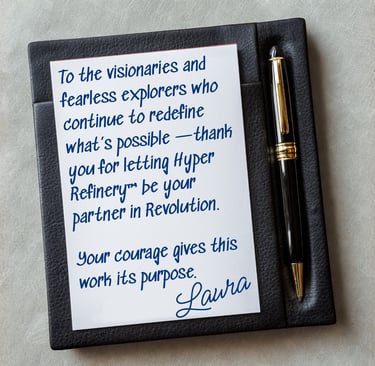 To the visionaries and
fearless explorers who
continue to redefine
what's possible —thank
you for letting Hyper
Refinery™ be your
partner in Revolution.
Your courage gives this
work its purpose.
Laura